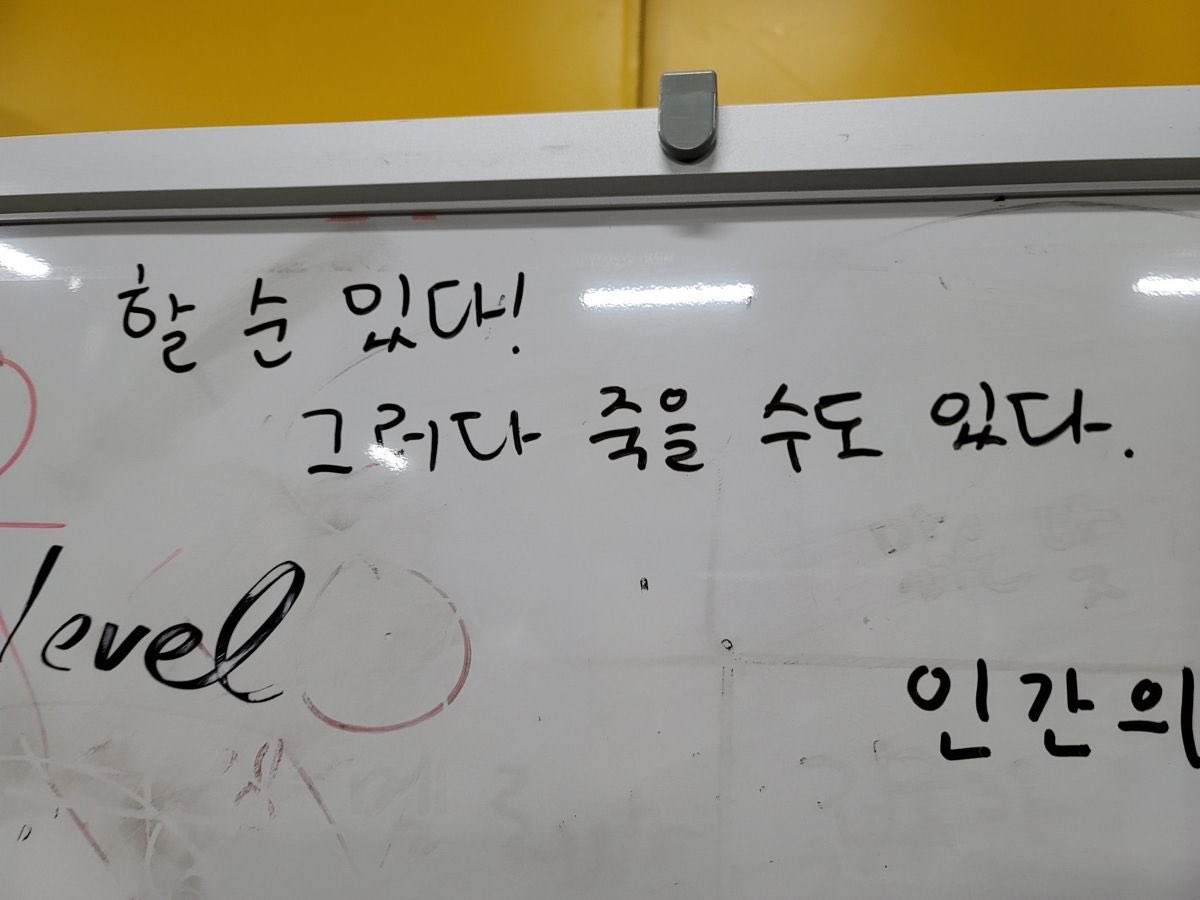 할 순 있다!
그러다 죽을 수도 있다.
level
인간의